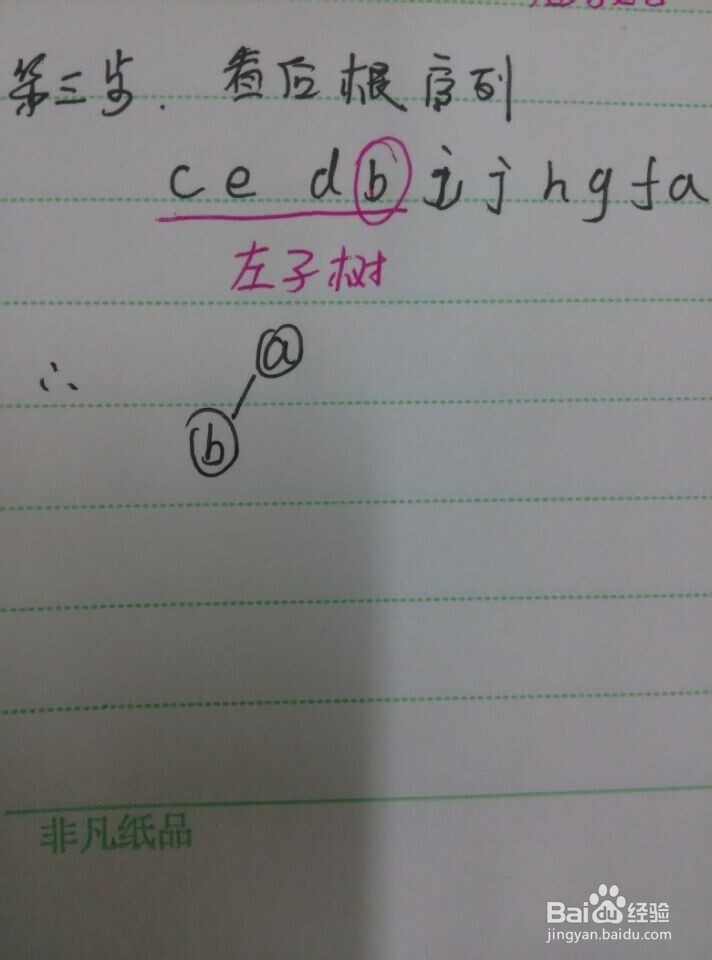 第三步. 看后根序列
c e d b i j h g f a
左子树
∴
a
b
非凡纸品
Bai du 经验
jingyan.baidu.com